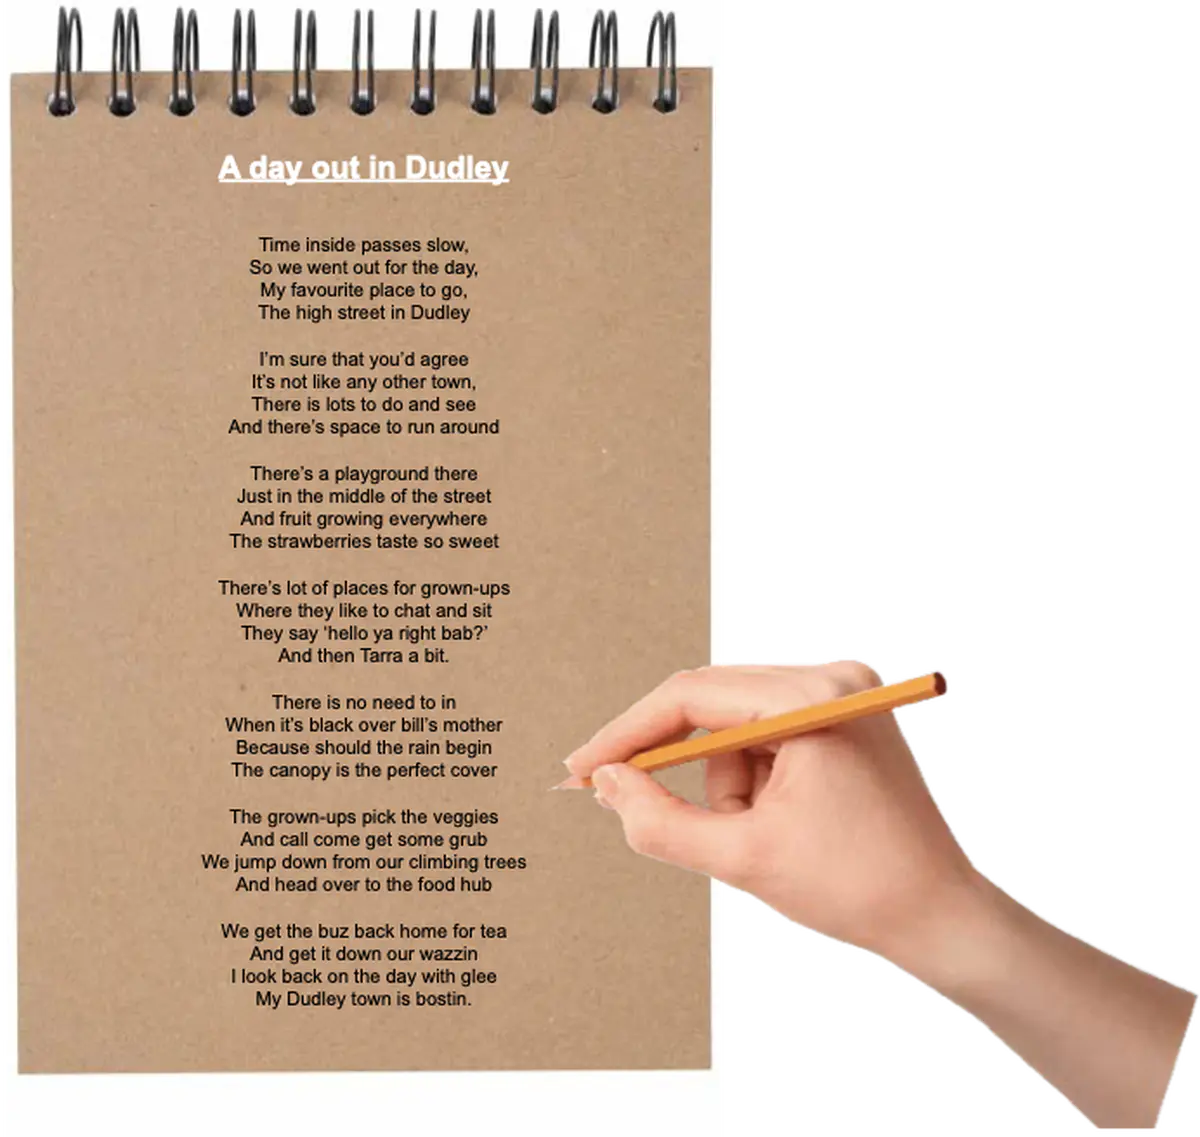 A day out in Dudley
Time inside passes slow,
So we went out for the day,
My favourite place to go,
The high street in Dudley
I'm sure that you'd agree
It's not like any other town,
There is lots to do and see
And there's space to run around
There's a playground there
Just in the middle of the street
And fruit growing everywhere
The strawberries taste so sweet
There's lot of places for grown-ups
Where they like to chat and sit
They say 'hello ya right bab?'
And then Tarra a bit.
There is no need to in
When it's black over bill's mother
Because should the rain begin
The canopy is the perfect cover
The grown-ups pick the veggies
And call come get some grub
We jump down from our climbing trees
And head over to the food hub
We get the buz back home for tea
And get it down our wazzin
I look back on the day with glee
My Dudley town is bostin.